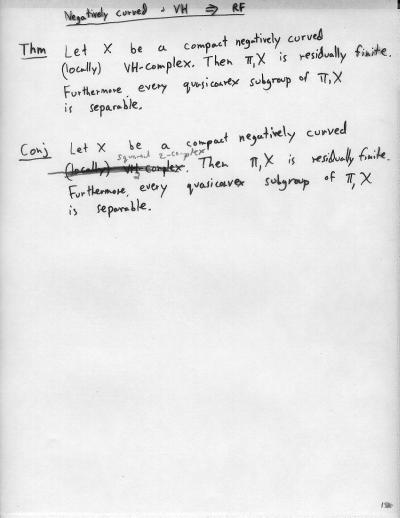 Negatively curved + VH ⇒ RF
Thm Let X be a compact negatively curved
(locally) VH-complex. Then π₁X is residually finite.
Furthermore, every quasiconvex subgroup of π₁X
is separable.
Conj Let X be a compact negatively curved
squared 2-complex
(locally) VH-complex. Then π₁X is residually finite.
Furthermore, every quasiconvex subgroup of π₁X
is separable.